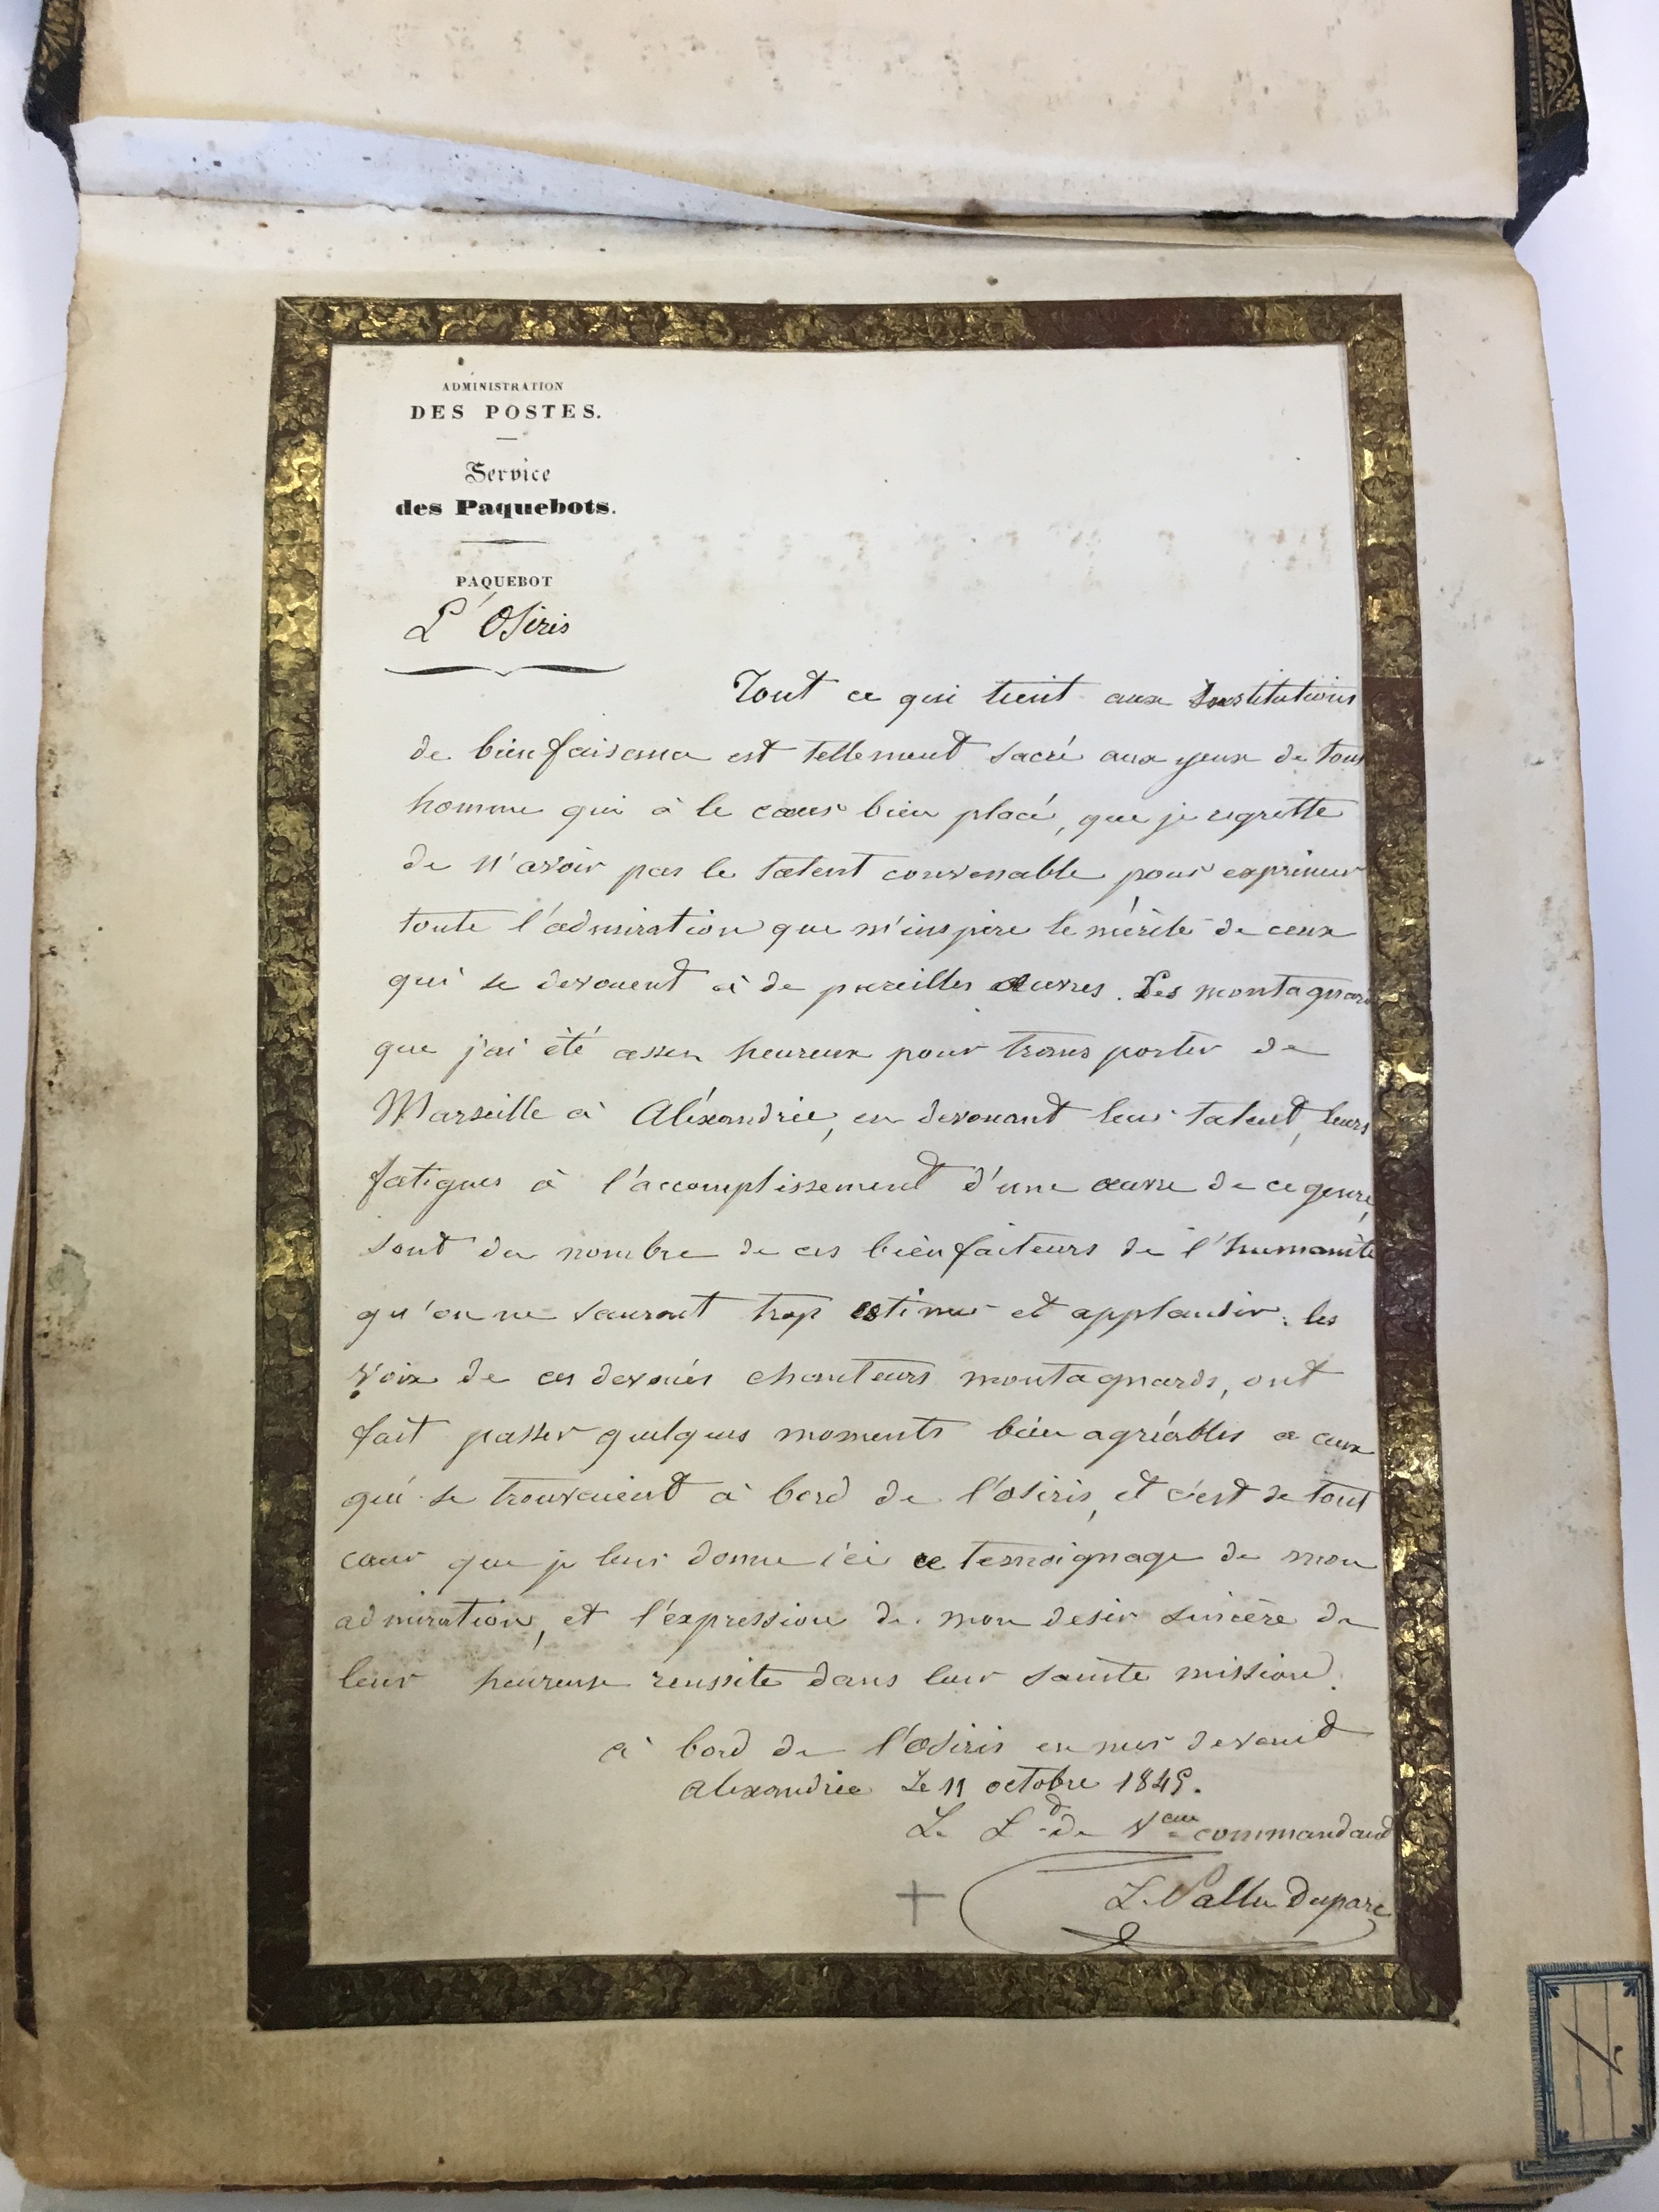 ADMINISTRATION
DES POSTES.
Service
des Paquebots.
PAQUEBOT
L'Osiris
Tout ce qui tient aux Institutions
de bienfaisance est tellement sacré aux yeux de tout
homme qui à le cœur bien placé, que je regrette
de n'avoir pas le talent convenable pour exprimer
toute l'admiration que m'inspire le mérite de ceux
qui se devouent à de pareilles œuvres. Les montagnards
que j'ai été assez heureux pour transporter de
Marseille à Aléxandrie, en devouant leur talent, leurs
fatigues à l'accomplissement d'une œuvre de ce genre,
sont du nombre de ces bienfaiteurs de l'humanité
qu'on ne saurait trop estimer et applaudir. les
voix de ces devoués chanteurs montagnards, ont
fait passer quelques moments bien agréables a ceux
qui se trouvaient à bord de l'osiris, et c'est de tout
cœur que je leur donne ici ce temoignage de mon
admiration, et l'expression de mon desir sincère de
leur heureuse reussite dans leur sainte mission.
à bord de l'Osiris en mer devant
alexandrie Le 11 octobre 1849.
Le Lt de Veau commandant
L. Pallu Duparc
7